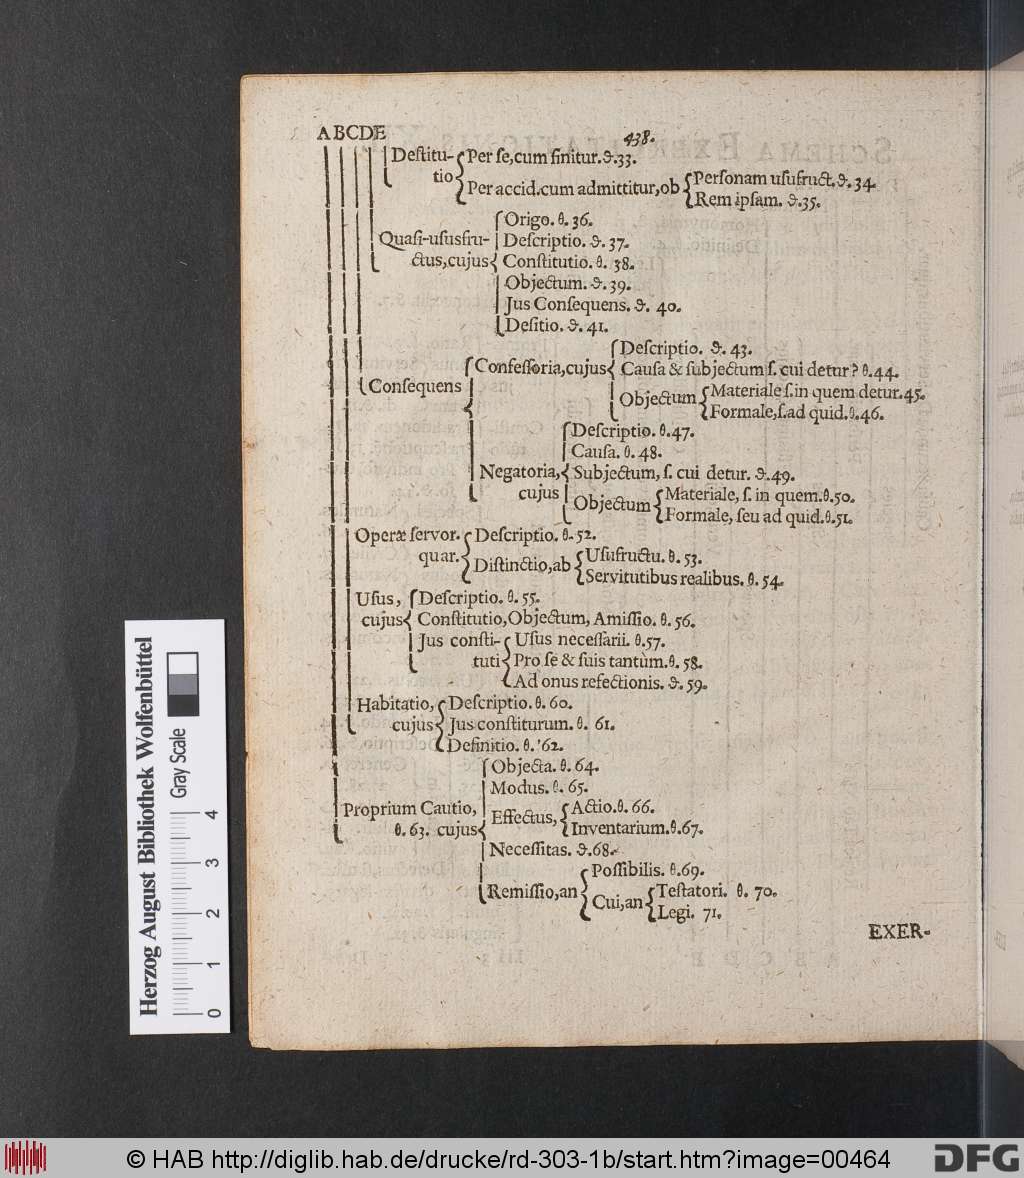 ABCDE
438.
Destitu- Per se, cum finitur. ϑ. 33.
tio Per accid. cum admittitur, ob Personam usufruct. ϑ. 34.
Rem ipsam. ϑ. 35.
Origo. θ. 36.
Quasi-ususfru- Descriptio. ϑ. 37.
ctus, cujus Constitutio. θ. 38.
Objectum. ϑ. 39.
Jus Consequens. ϑ. 40.
Desitio. ϑ. 41.
Descriptio. ϑ. 43.
Confessoria, cujus Causa & subjectum s. cui detur? θ. 44.
Consequens
Objectum Materiale s. in quem detur. 45.
Formale, s. ad quid. θ. 46.
Descriptio. θ. 47.
Causa. θ. 48.
Negatoria, Subjectum, s. cui detur. ϑ. 49.
cujus Objectum Materiale, s. in quem. θ. 50.
Formale, seu ad quid. θ. 51.
Operæ servor. Descriptio. θ. 52.
quar. Distinctio, ab Usufructu. θ. 53.
Servitutibus realibus. θ. 54.
Usus, Descriptio. θ. 55.
cujus Constitutio, Objectum, Amissio. θ. 56.
Jus consti- Usus necessarii. θ. 57.
tuti Pro se & suis tantùm. θ. 58.
Ad onus refectionis. ϑ. 59.
Habitatio, Descriptio. θ. 60.
cujus Jus constiturum. θ. 61.
Definitio. θ. 62.
Objecta. θ. 64.
Modus. θ. 65.
Proprium Cautio, Effectus, Actio. θ. 66.
θ. 63. cujus Inventarium. θ. 67.
Necessitas. ϑ. 68.
Remissio, an Possibilis. θ. 69.
Cui, an Testatori. θ. 70.
Legi. 71.
EXER-
Herzog August Bibliothek Wolfenbüttel
Gray Scale
0 1 2 3 4
© HAB http://diglib.hab.de/drucke/rd-303-1b/start.htm?image=00464
DFG